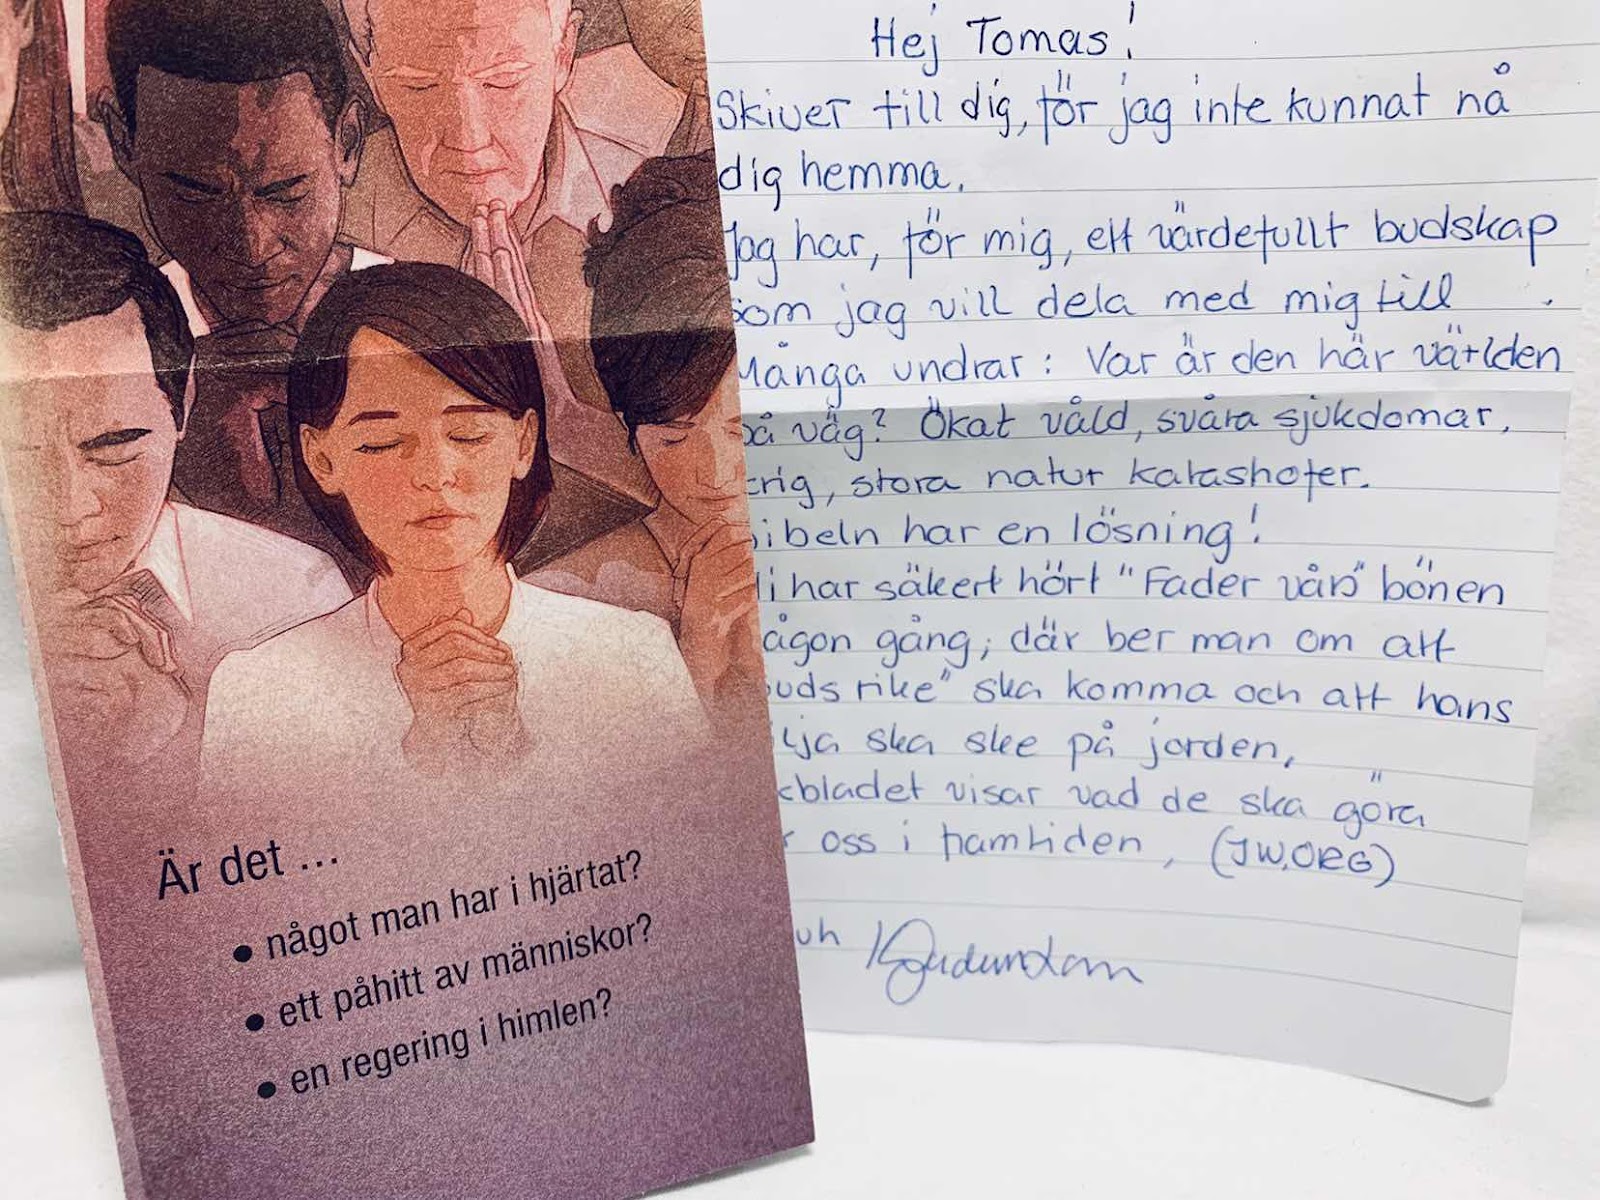 Är det ...
• något man har i hjärtat?
• ett påhitt av människor?
• en regering i himlen?
Hej Tomas!
Skiver till dig, för jag inte kunnat nå
dig hemma.
Jag har, för mig, ett värdefullt budskap
som jag vill dela med mig till .
Många undrar: Var är den här världen
på väg? Ökat våld, svåra sjukdomar,
krig, stora natur katashofer.
Bibeln har en lösning!
Ni har säkert hört "Fader vår" bönen
någon gång, där ber man om att
Guds rike" ska komma och att hans
lja ska ske på jorden,
bladet visar vad de ska göra
oss i framtiden, (JW.ORG)